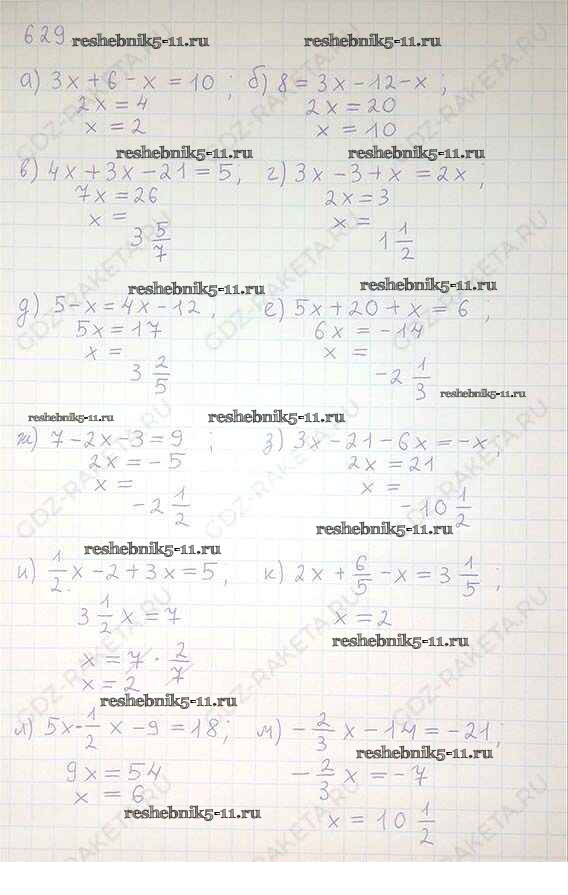 629 reshebnik5-11.ru reshebnik5-11.ru
а) 3x + 6 - x = 10 ; б) 8 = 3x - 12 - x ;
2x = 4 2x = 20
x = 2 x = 10
reshebnik5-11.ru reshebnik5-11.ru
в) 4x + 3x - 21 = 5, г) 3x - 3 + x = 2x ;
7x = 26 2x = 3
x = 3 5/7 x = 1 1/2
reshebnik5-11.ru reshebnik5-11.ru
д) 5 - x = 4x - 12 , е) 5x + 20 + x = 6 ,
5x = 17 6x = -14
x = 3 2/5 x = -2 1/3
reshebnik5-11.ru
reshebnik5-11.ru reshebnik5-11.ru
ж) 7 - 2x - 3 = 9 ; з) 3x - 21 - 6x = -x,
2x = -5 2x = 21
x = -2 1/2 x = -10 1/2
reshebnik5-11.ru
reshebnik5-11.ru
и) 1/2 x - 2 + 3x = 5, к) 2x + 6/5 - x = 3 1/5 ;
3 1/2 x = 7 x = 2
reshebnik5-11.ru
x = 7 · 2/7
x = 2
reshebnik5-11.ru
л) 5x - 1/2 x - 9 = 18; м) - 2/3 x - 14 = -21,
reshebnik5-11.ru
9x = 54 - 2/3 x = -7
x = 6
reshebnik5-11.ru
x = 10 1/2
GDZ-RAKETA.RU